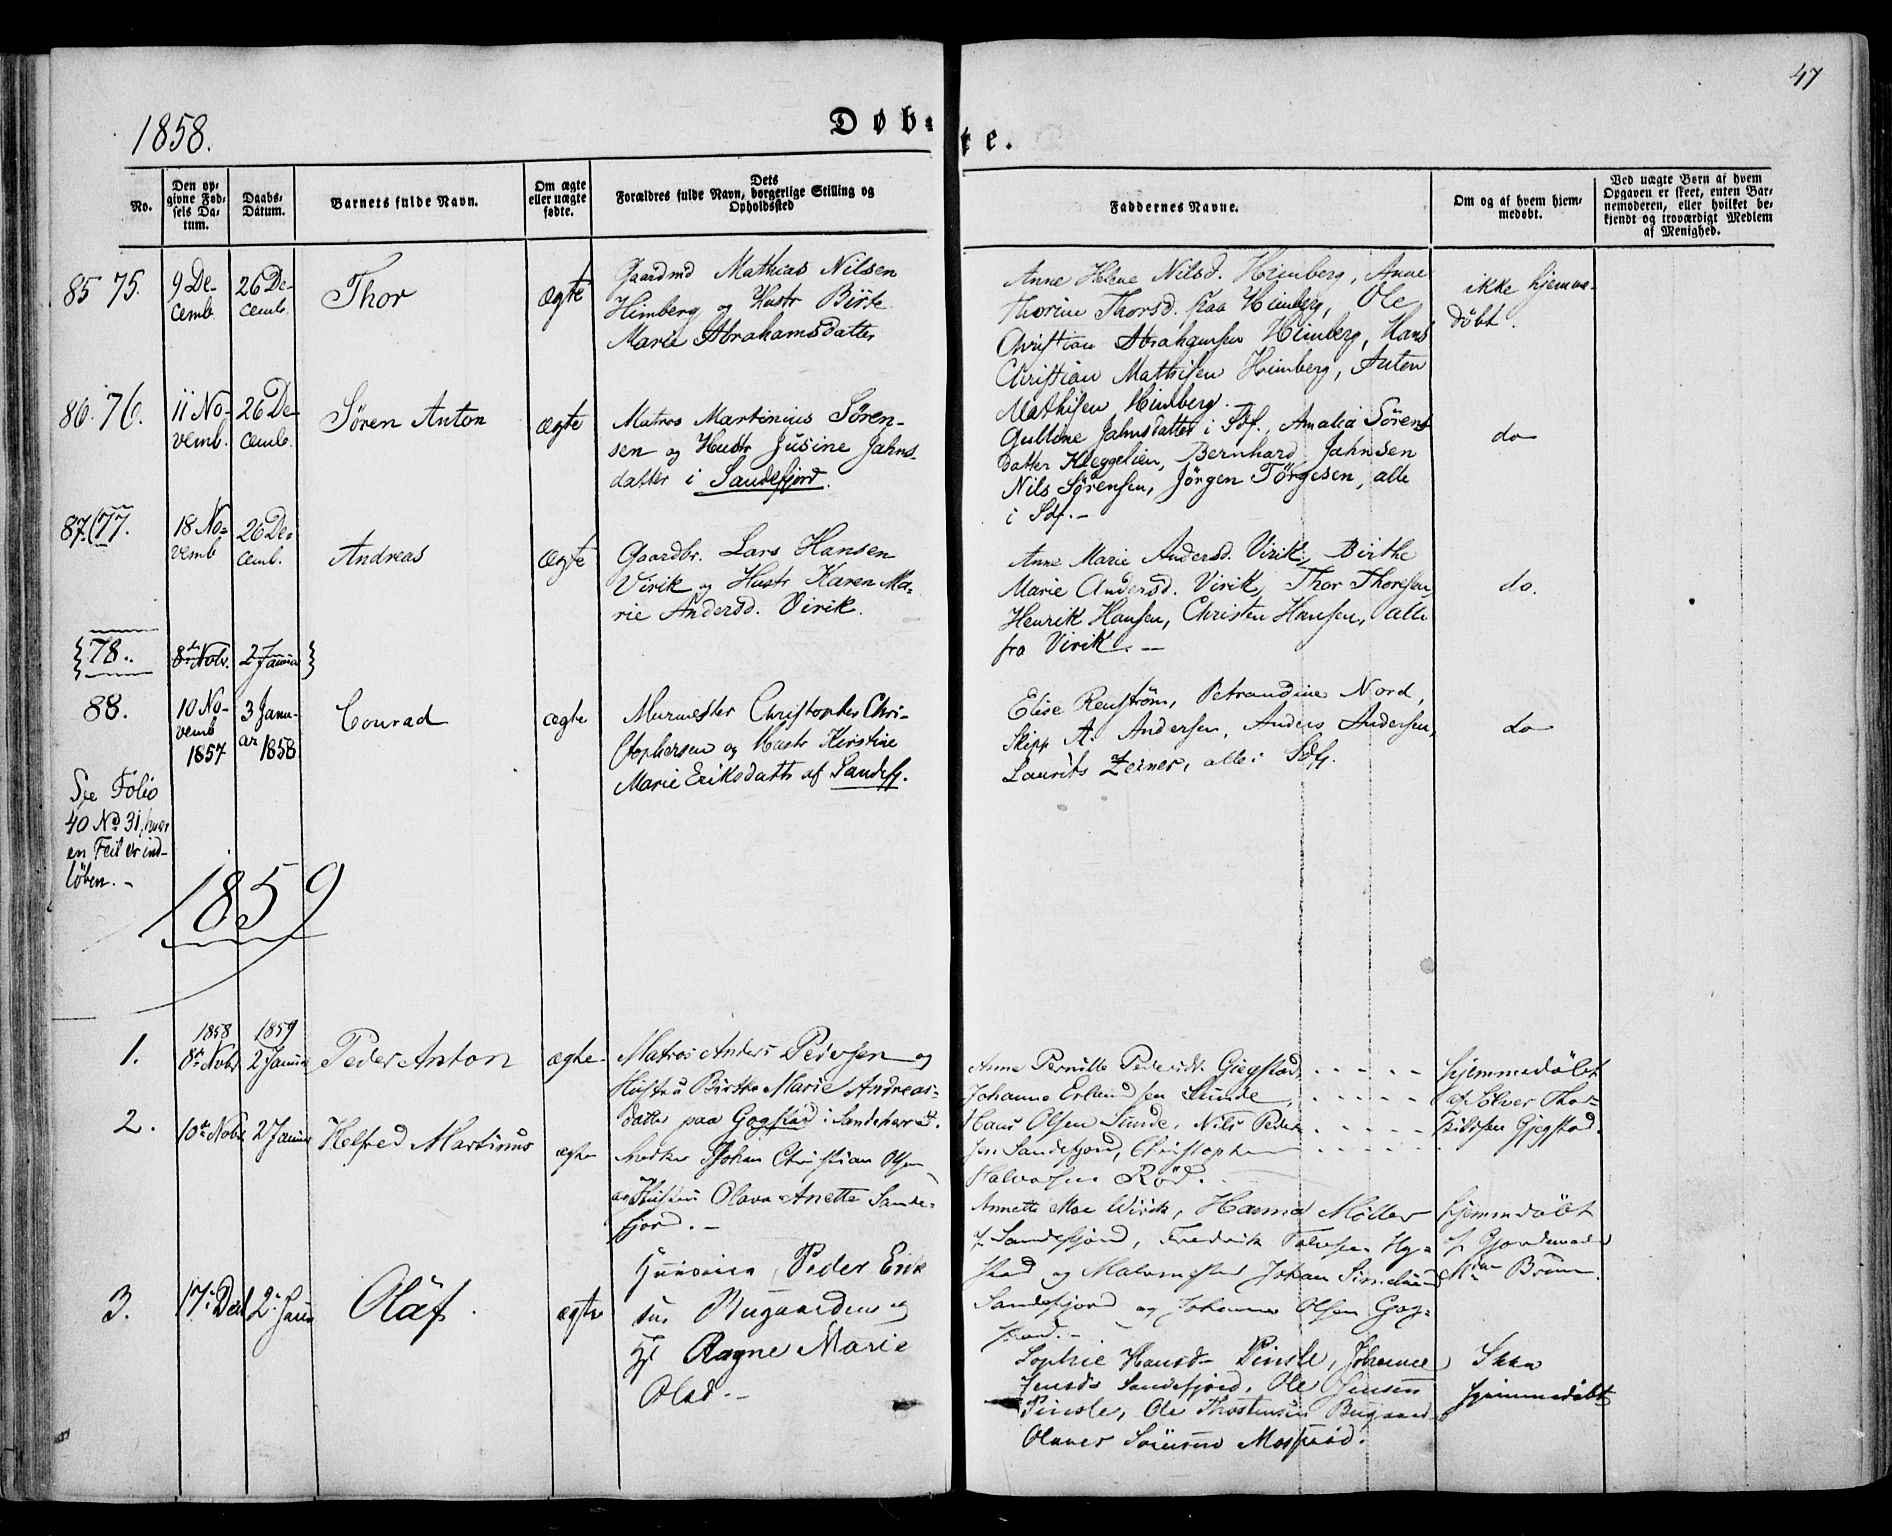 47
1858.
Døb-
te.
No.
Den op-
givne Fød-
sels Da-
tum.
Daabs-
Datum.
Barnets fulde Navn.
Om ægte
eller uægte
fødte.
Dets
Forældres fulde Navn, borgerlige Stilling og
Opholdssted
Faddernes Navne.
Om og af hvem hjem-
medøbt.
Ved uægte Børn af hvem
Opgaven er skeet, enten Bar-
nemoderen, eller hvilket be-
kjendt og troværdigt Medlem
af Menighed.
85 75.
9 De-
cemb.
26 De-
cemb.
Thor
ægte
Gaardmd Mathias Nilsen
Himberg og Hustr Birte
Marie Abrahamsdatter
Anne Helene Nilsd. Himberg, Anne
Thorine Thorsd. paa Himberg, Ole
Christian Abrahamsen Himberg, Hans
Christian Mathisen Himberg, Anten
Mathisen Himberg.
ikke hjemme-
döbt.
86. 76.
11 No-
vemb.
26 De-
cemb.
Sören Anton
ægte
Matros Martinius Sören-
sen og Hustr Jusine Jahns-
datter i Sandefjord.
Gulline Jahnsdatter i Sdf., Amalia Sörens
datter Kleggelien, Bernhard Jahnsen
Nils Sörensen, Jörgen Törgesen, alle
i Sdf. -
do
87. 77.
18 No-
vemb
26 De-
cemb.
Andreas
ægte
Gaardbr. Lars Hansen
Virik og Hustr Karen Ma-
rie Andersd. Virik.
Anne Marie Andersd. Virik, Birthe
Marie Andersd. Virik, Thor Thoresen,
Henrik Hansen, Christen Hansen, alle
fra Virik. -
do.
{78.
8de Novbr.
2 Januar }
88.
10 No-
vemb
1857
3 Janu-
ar 1858.
Conrad
ægte
Murmester Christopher Chri-
stophersen og Hustr Kirstine
Marie Eriksdattr af Sandefj.
Elise Renström, Petrandine Nord,
Skipp A. Andersen, Anders Andersen,
Laurits Zeiner, alle i Sdfj.
do
See Folio
40 No 31, hvor
en Feil er ind-
löben. -
1859
1.
1858
8de Novbr
1859
2 Januar
Peder Anton
ægte
Matros Anders Pedersen og
Hustru Birthe Marie Andreas-
datter paa Gogstad i Sandeherred.
Anne Pernille Pedersdt. Gjegstad,
Johanne Erlandsen Sunde,
Hans Olsen Sunde, Nils Peder-
sen Sandefjord, Christopher
Halvorsen Röd.
Hjemmedöbt
af Sölver Thor-
kildsen Gjegstad.
2.
10de Novbr.
2 Januar
Helfred Martinius
ægte
Snedker Johan Christian Olsen
og Hustru Olava Anette Sande-
fjord. -
Annette Moe Virik, Hanna Möller
af Sandefjord, Fredrik
stad og Malermester Johan
Sandefjord og Johannes Olsen Gog-
stad. -
Hjemmedöbt
af Gjordemoder
Brun.
3.
17. Decb
2. Janr
Olaf.
ægte
Peder Erik
sen Bugaarden og
H. Ragne Marie
Olsd. -
Sophie Hansd. Pindsle, Johanne
Jensd. Sandefjord, Ole Jensen
Pindsle, Ole Thostensen Bugaard
Olaves Sörensen Mosseröd.
Ikke
hjemmedöbt